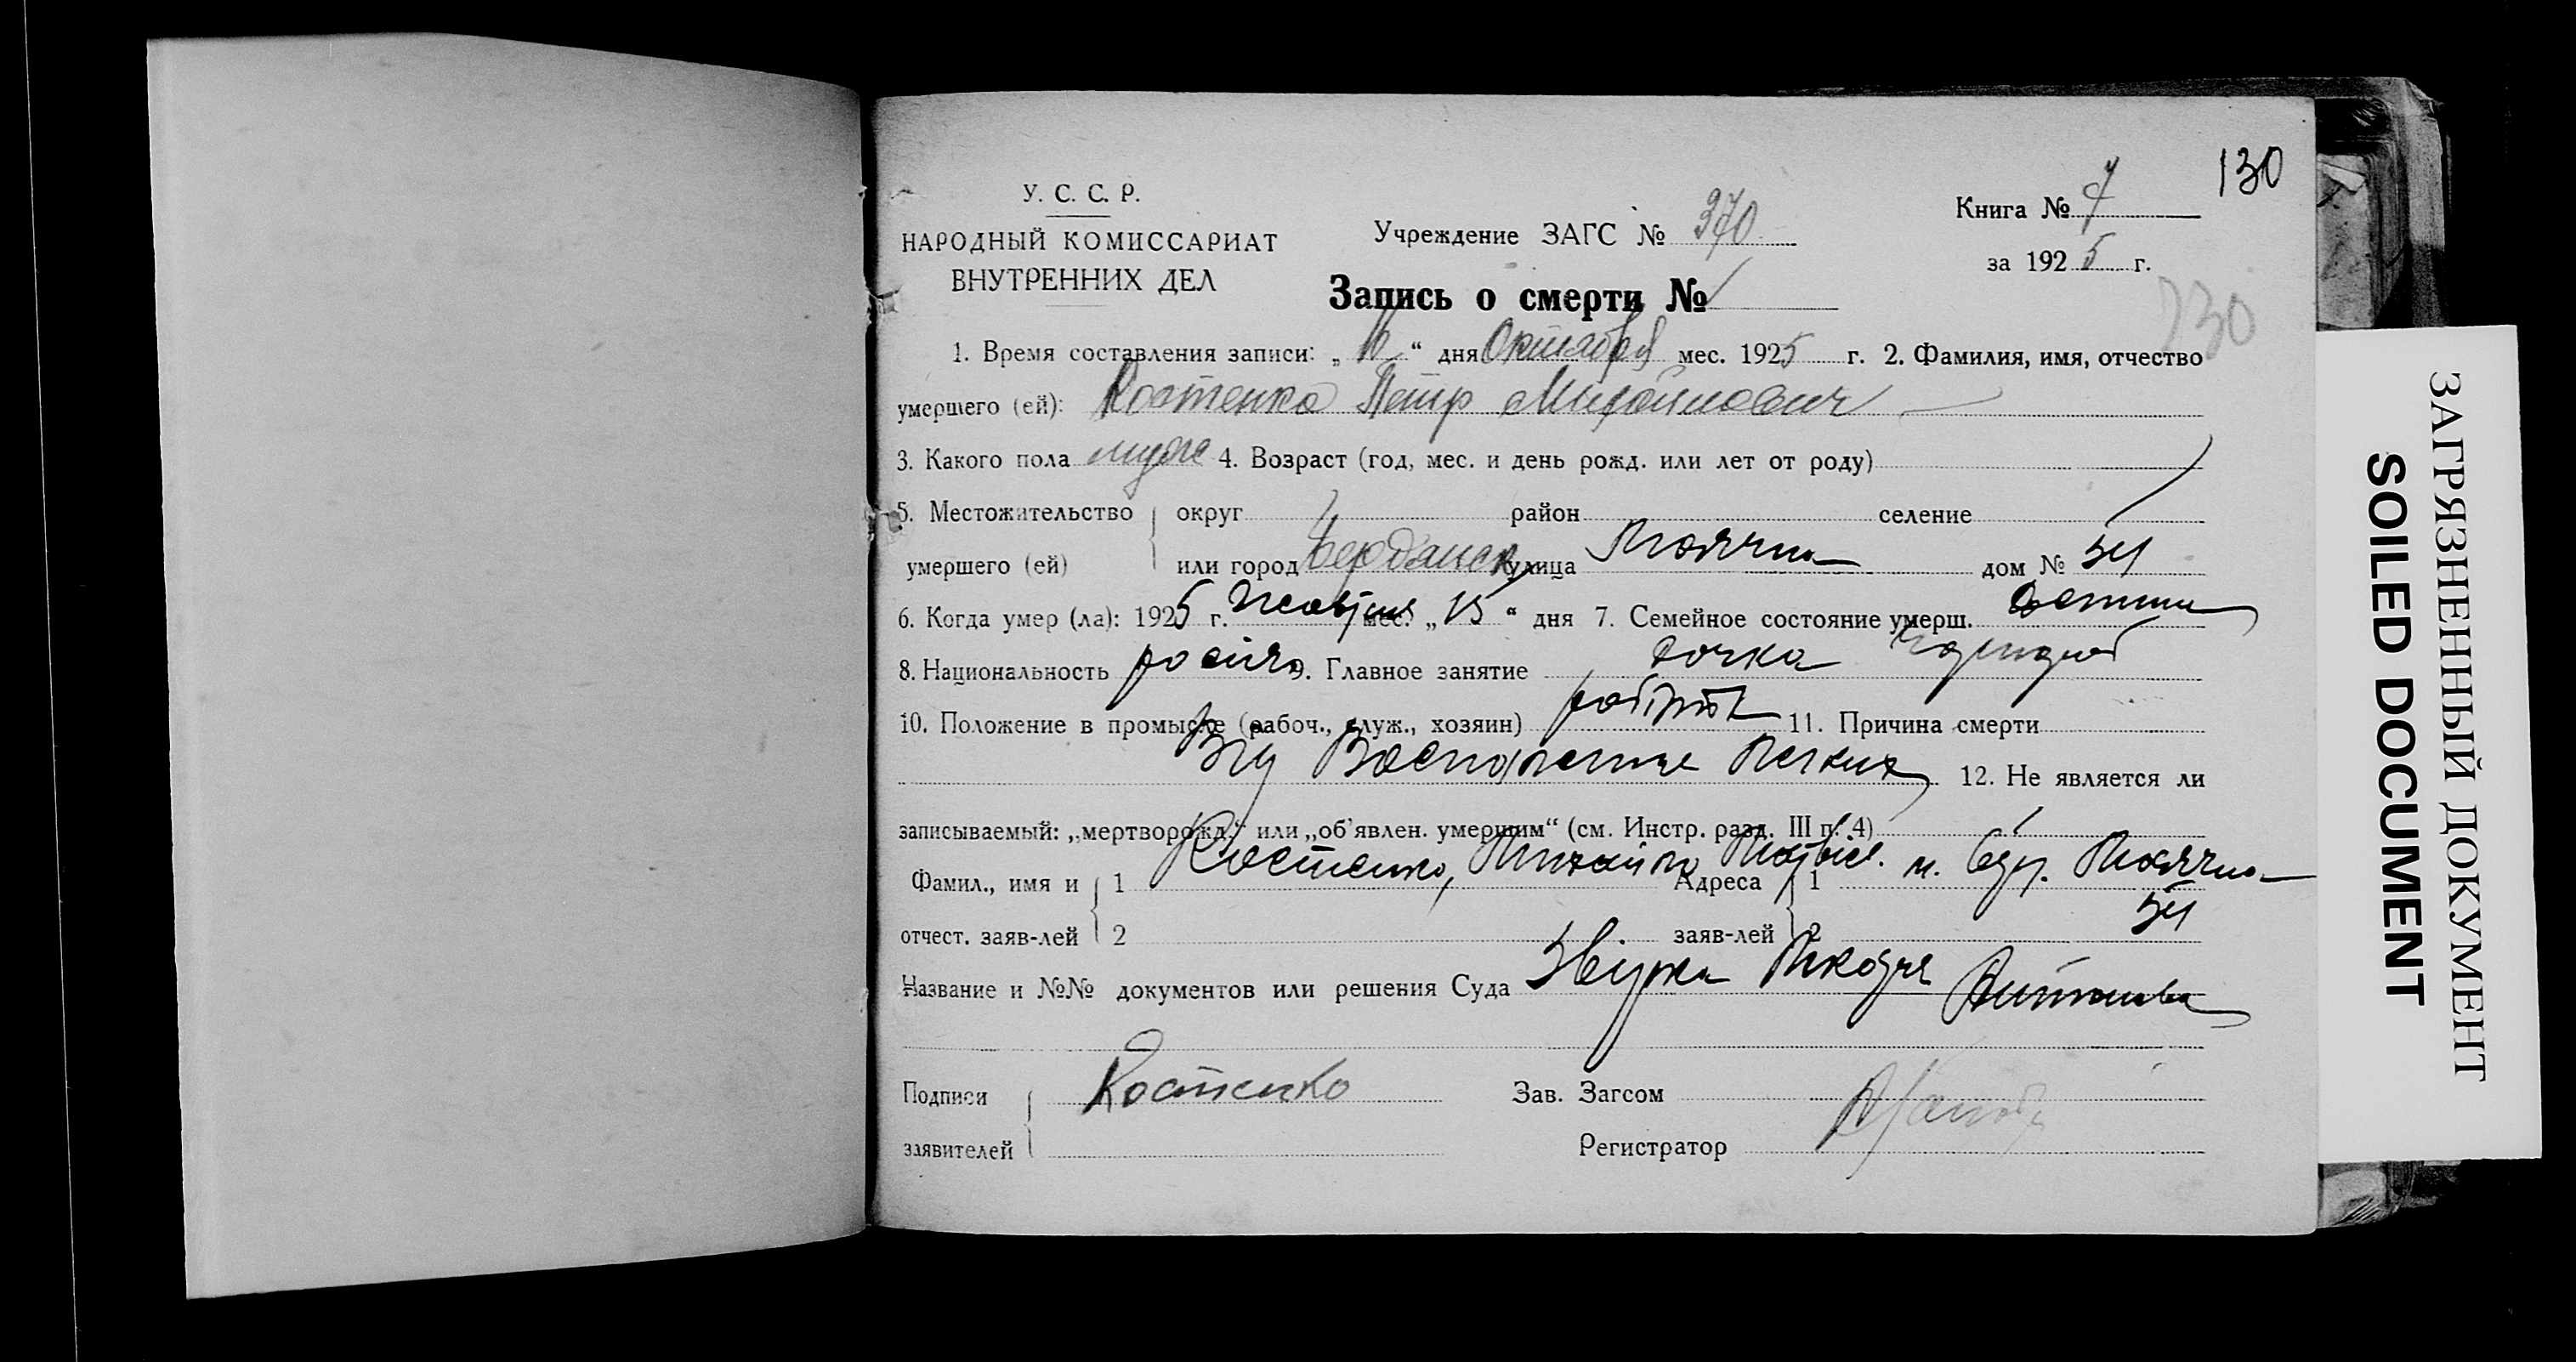 130
У. С. С. Р.
НАРОДНЫЙ КОМИССАРИАТ
ВНУТРЕННИХ ДЕЛ
Учреждение ЗАГС № 370
Книга № 7
за 1925 г.
Запись о смерти №
130
1. Время составления записи: „16“ дня Октября мес. 1925 г. 2. Фамилия, имя, отчество
умершего (ей): Костенко Петр Михайлович
3. Какого пола муж 4. Возраст (год, мес. и день рожд. или лет от роду)
5. Местожительство округ район селение
умершего (ей) или город Бердянск улица дом № 54
6. Когда умер (ла): 1925 г. Жовтня мес. „15“ дня 7. Семейное состояние умерш.
8. Национальность 9. Главное занятие
10. Положение в промысле (рабоч., служ., хозяин) робітн 11. Причина смерти
Від Воспаление Легких 12. Не является ли
записываемый: „мертворожд.“ или „об'явлен. умершим“ (см. Инстр. разд. III п. 4)
Фамил., имя и 1 Костенко, Михайло Адреса 1 м.
54
отчест. заяв-лей 2 заяв-лей 2
Название и №№ документов или решения Суда
Подписи Костенко Зав. Загсом
заявителей Регистратор
ЗАГРЯЗНЕННЫЙ ДОКУМЕНТ
SOILED DOCUMENT